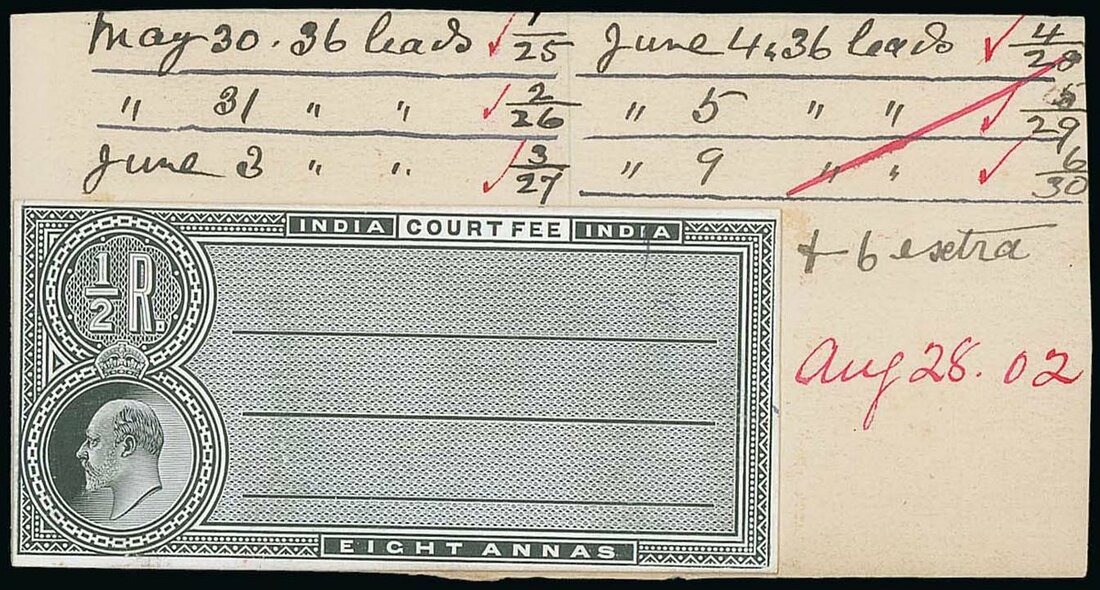 May 30. 36 leads ✓ 1/25
" 31 " " ✓ 2/26
June 3 " " ✓ 3/27
June 4. 36 leads ✓ 4/28
" 5 " " ✓ 5/29
" 9 " " ✓ 6/30
+ 6 extra
Aug 28. 02
INDIA COURT FEE INDIA
1/2 R.
EIGHT ANNAS